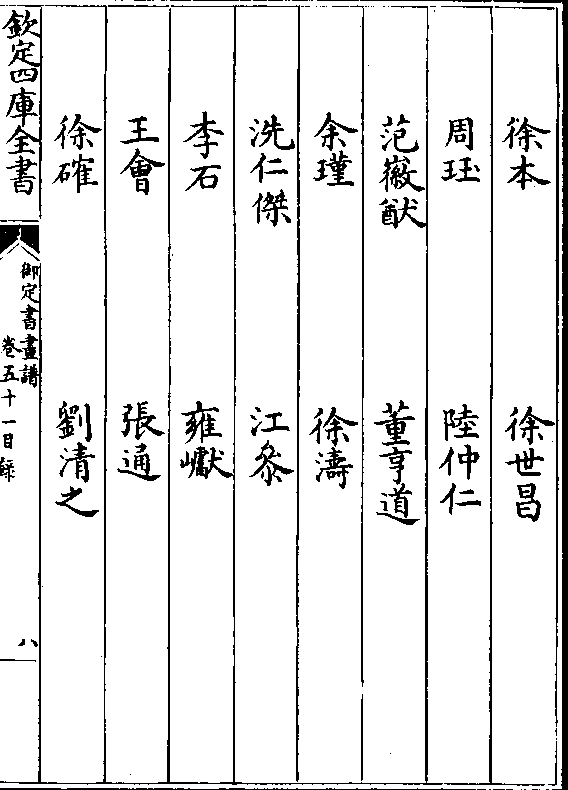 徐本　徐世昌
周珏　陸仲仁
范㣲猷　董亨道
余瑾　徐濤
洗仁傑　江叅
李石　雍巘
王會　張通
徐確　劉清之
欽定四庫全書
御定書畫譜
卷五十一目録
八